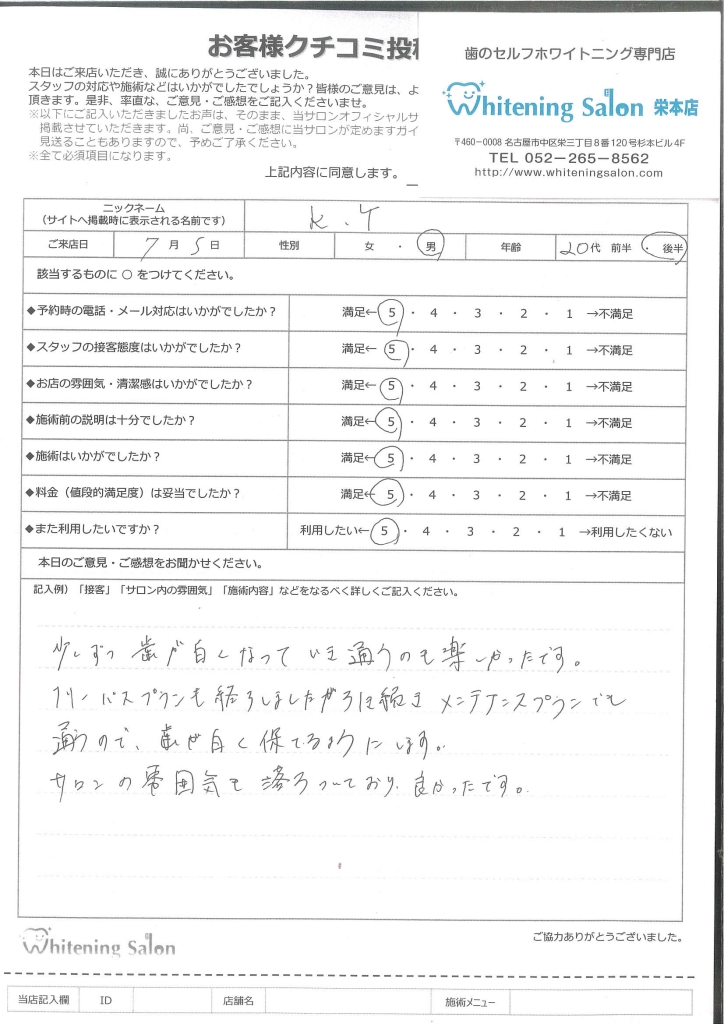 お客様クチコミ投稿
本日はご来店いただき、誠にありがとうございました。
スタッフの対応や施術などはいかがでしたでしょうか？皆様のご意見は、よ
頂きます。是非、率直な、ご意見・ご感想をご記入くださいませ。
※以下にご記入いただきましたお声は、そのまま、当サロンオフィシャルサ
掲載させていただきます。尚、ご意見・ご感想に当サロンが定めますガイ
見送ることもありますので、予めご了承ください。
※全て必須項目になります。
上記内容に同意します。
歯のセルフホワイトニング専門店
Whitening Salon 栄本店
〒460-0008 名古屋市中区栄三丁目8番120号杉本ビル4F
TEL 052-265-8562
http://www.whiteningsalon.com
ニックネーム
（サイトへ掲載時に表示される名前です）
K.Y
ご来店日 7月 5日 性別 女 ・ 男 年齢 20代 前半 ・ 後半
該当するものに ○ をつけてください。
◆予約時の電話・メール対応はいかがでしたか？ 満足← 5 ・ 4 ・ 3 ・ 2 ・ 1 →不満足
◆スタッフの接客態度はいかがでしたか？ 満足← 5 ・ 4 ・ 3 ・ 2 ・ 1 →不満足
◆お店の雰囲気・清潔感はいかがでしたか？ 満足← 5 ・ 4 ・ 3 ・ 2 ・ 1 →不満足
◆施術前の説明は十分でしたか？ 満足← 5 ・ 4 ・ 3 ・ 2 ・ 1 →不満足
◆施術はいかがでしたか？ 満足← 5 ・ 4 ・ 3 ・ 2 ・ 1 →不満足
◆料金（値段的満足度）は妥当でしたか？ 満足← 5 ・ 4 ・ 3 ・ 2 ・ 1 →不満足
◆また利用したいですか？ 利用したい← 5 ・ 4 ・ 3 ・ 2 ・ 1 →利用したくない
本日のご意見・ご感想をお聞かせください。
記入例）「接客」「サロン内の雰囲気」「施術内容」などをなるべく詳しくご記入ください。
少しずつ歯が白くなっていき通うのも楽しかったです。
フリーパスプランも終了しましたが引き続きメンテナンスプランでも
通うので、歯が白く保てるようにします。
サロンの雰囲気も落ちついており、良かったです。
Whitening Salon
ご協力ありがとうございました。
当店記入欄 ID 店舗名 施術メニュー